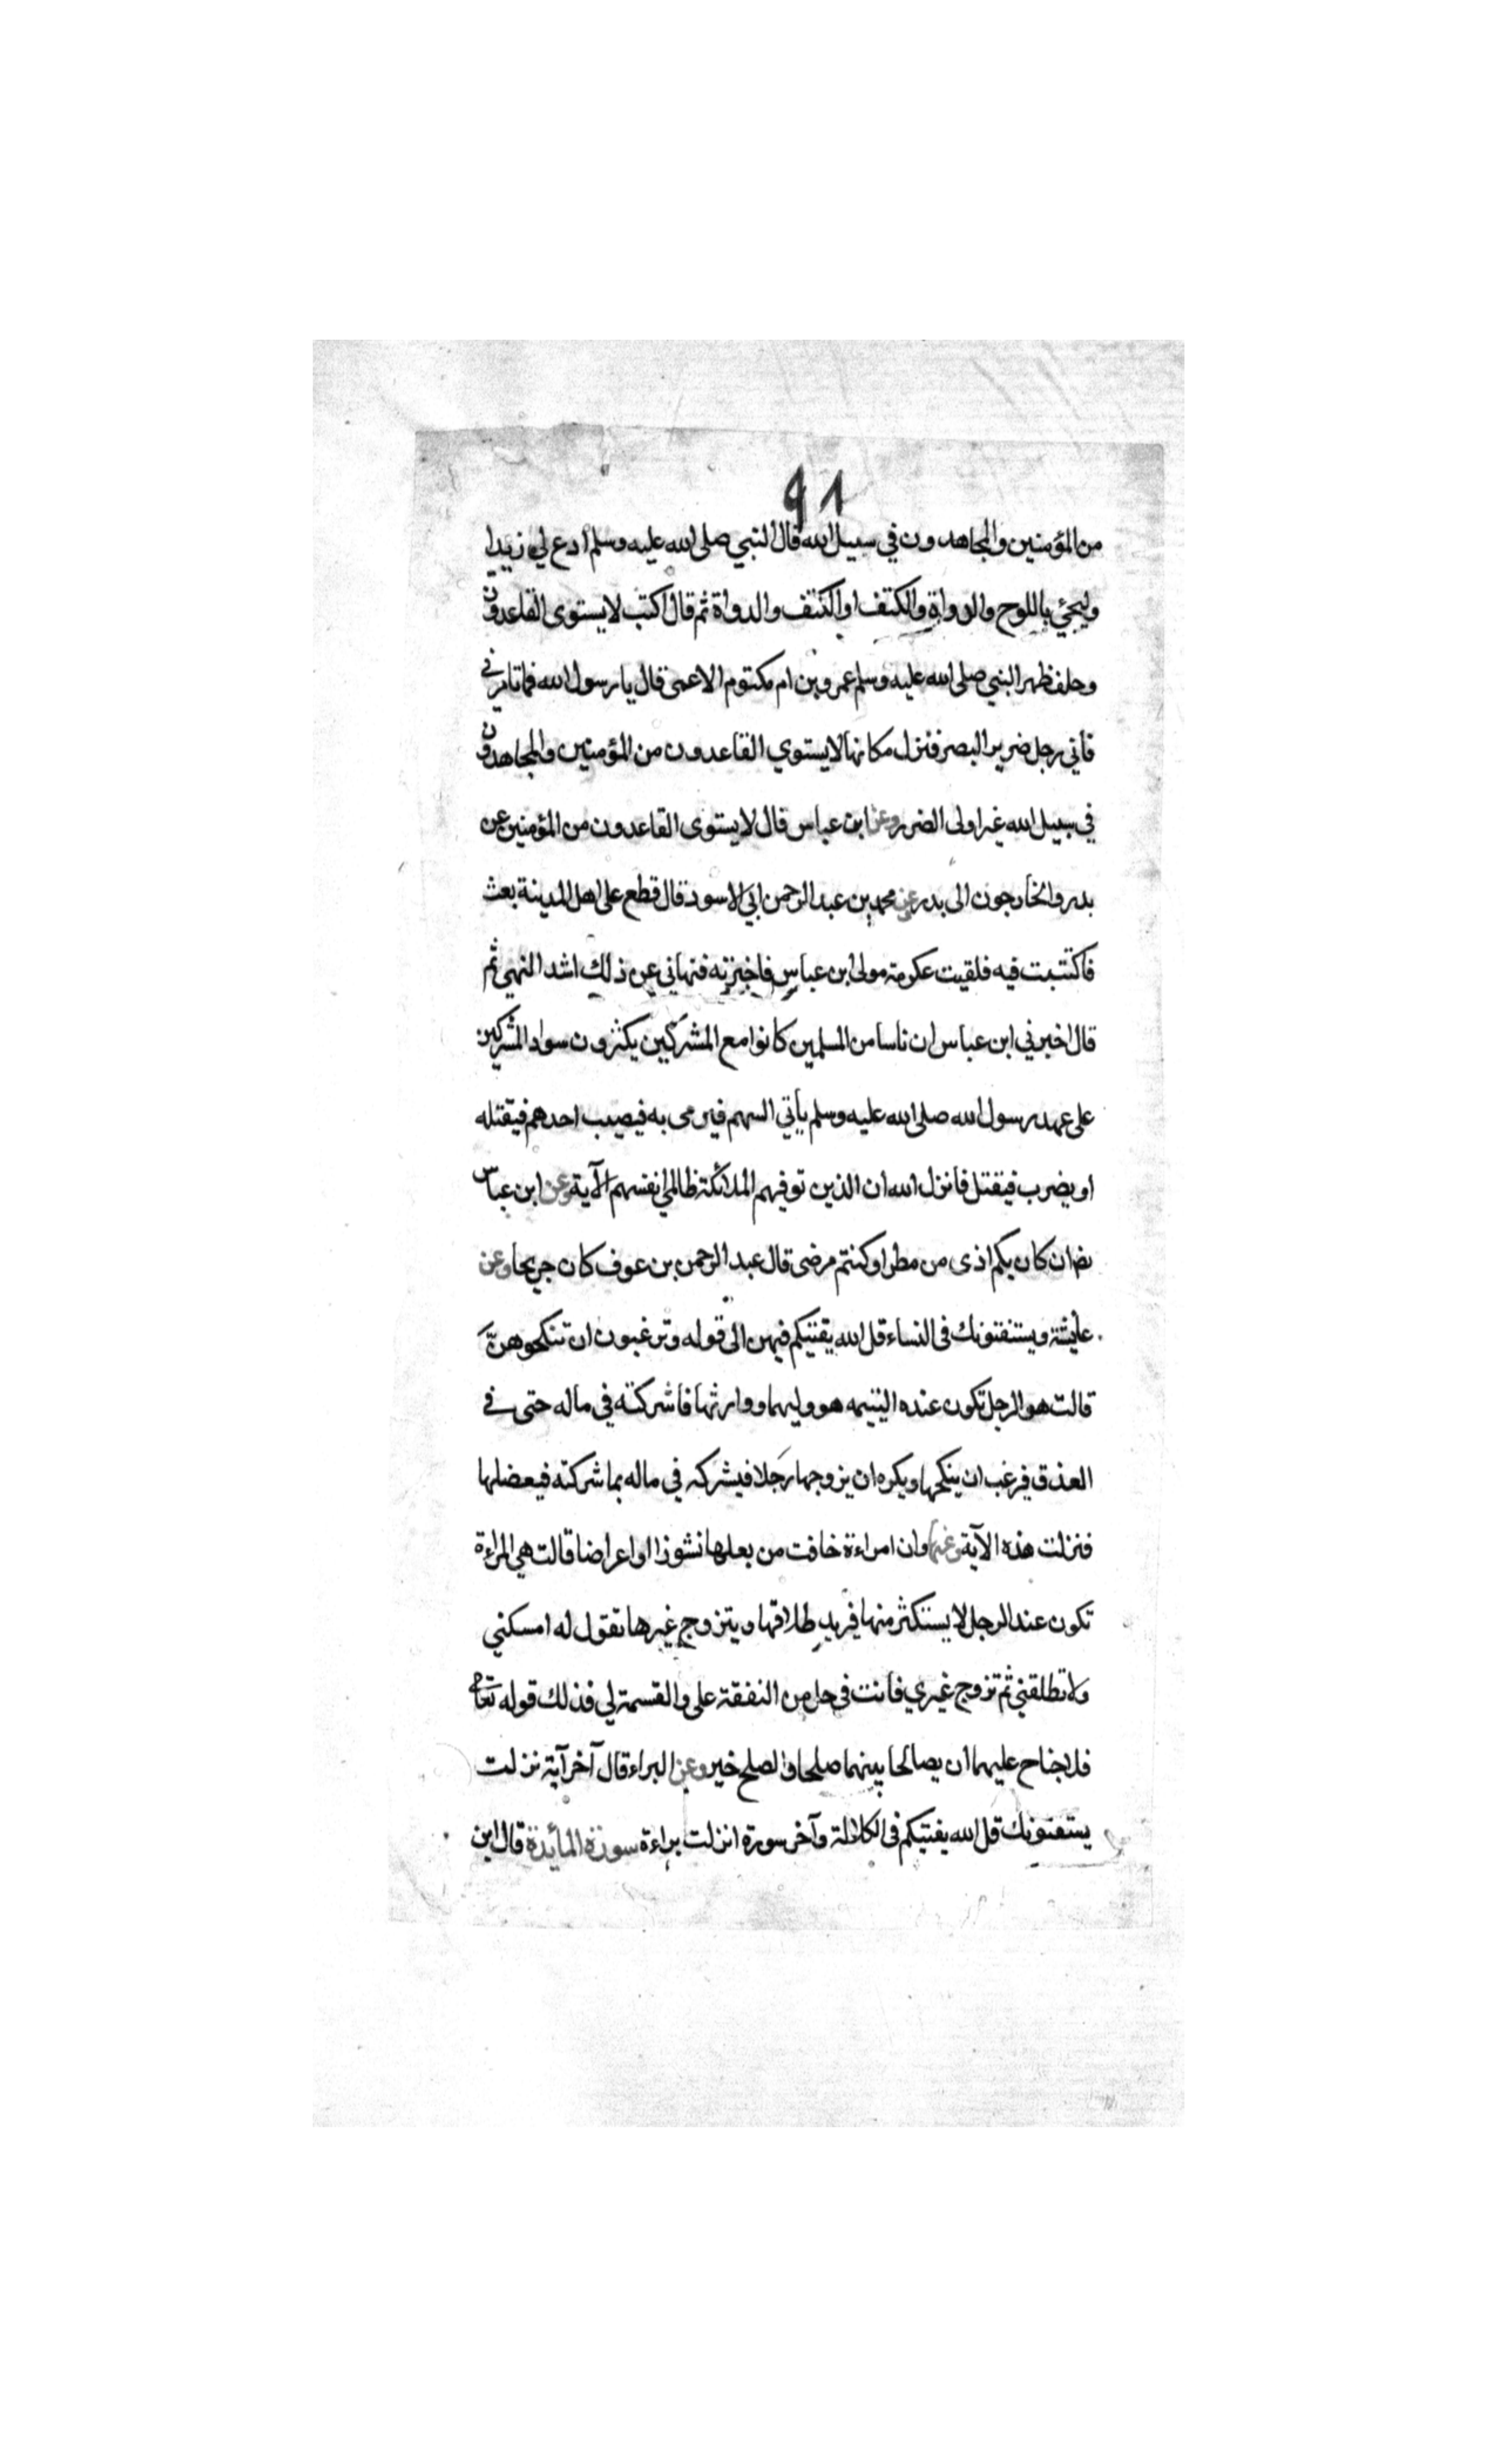 ٩٨
من المؤمنين والمجاهدون في سبيل الله قال النبي صلى الله عليه وسلم ادع لي زيدا
وليجئ باللوح والدواة والكتف او الكتف والدواة ثم قال اكتب لا يستوى القاعدون
وخلف ظهر النبي صلى الله عليه وسلم عمرو بن ام مكتوم الاعمى قال يا رسول الله فما تامرني
فاني رجل ضرير البصر فنزل مكانها لا يستوي القاعدون من المؤمنين والمجاهدون
في سبيل الله غير اولى الضرر وعن ابن عباس قال لا يستوى القاعدون من المؤمنين عن
بدر والخارجون الى بدر عن محمد بن عبد الرحمن ابي الاسود قال قطع على اهل المدينة بعث
فاكتتبت فيه فلقيت عكرمة مولى ابن عباس فاخبرته فنهاني عن ذلك اشد النهي ثم
قال اخبرني ابن عباس ان ناسا من المسلمين كانوا مع المشركين يكثرون سواد المشركين
على عهد رسول الله صلى الله عليه وسلم يأتي السهم فيرمى به فيصيب احدهم فيقتله
او يضرب فيقتل فانزل الله ان الذين توفيهم الملائكة ظالمي انفسهم الآية وعن ابن عباس
ان كان بكم اذى من مطر او كنتم مرضى قال عبد الرحمن بن عوف كان جريحا وعن
عائشة ويستفتونك فى النساء قل الله يفتيكم فيهن الى قوله وترغبون ان تنكحوهنّ
قالت هو الرجل تكون عنده اليتيمه هو وليها ووارثها فاشركته في ماله حتى في
العذق فيرغب ان ينكحها ويكره ان يزوجها رجلا فيشركه في ماله بما شركته فيعضلها
فنزلت هذه الآية وعنها وان امراءة خافت من بعلها نشوزا او اعراضا قالت هي المراءة
تكون عند الرجل لا يستكثر منها فيريد طلاقها ويتزوج غيرها تقول له امسكني
ولا تطلقني ثم تزوج غيري فانت فى حل من النفقة على والقسمة لي فذلك قوله تعا
فلا جناح عليهما ان يصالحا بينهما صلحا والصلح خير وعن البراء قال آخر آية نزلت
يستفتونك قل الله يفتيكم فى الكلالة وآخر سورة انزلت براءة سورة المائدة قال ابن